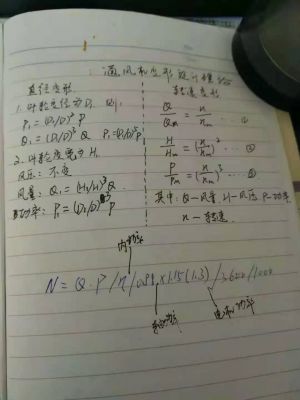 通风机变形设计理论
直径变形
1. 叶轮直径为D₁ 则:
P₁=(D₁/D)² P
Q₁=(D₁/D)³ Q P₁=(D₁/D)⁵P
2. 叶轮宽度为H₁
风压: 不变
风量: Q₁=(H₁/H)³Q
功率: P₁=(D₁/D)³P
转速变形
Q/Qm = n/nm … ①
H/Hm = (n/nm)² … ②
P/Pm = (n/nm)³ … ③
其中: Q—风量 H—风压 P—功率
n—转速
内功率
N = Q·P/η/0.98×1.15(1.3)/3600/1000
电机功率